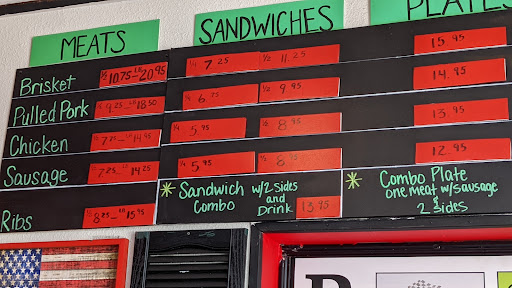 MEATS
SANDWICHES
PLATES
Brisket ½ 10.75 - LB 20.95 ¼ 7.25 ½ 11.25 15.95
Pulled Pork 9.25 - LB 18.50 ¼ 6.75 ½ 9.95 14.95
Chicken 7.75 - LB 14.95 ¼ 5.95 ½ 8.95 13.95
Sausage 7.25 - LB 14.25 ¼ 5.95 ½ 8.75 12.95
Ribs ½ 8.25 - LB 15.95
* Sandwich w/2 Sides
Combo and
Drink 13.95
* Combo Plate
one meat w/sausage
&
2 sides